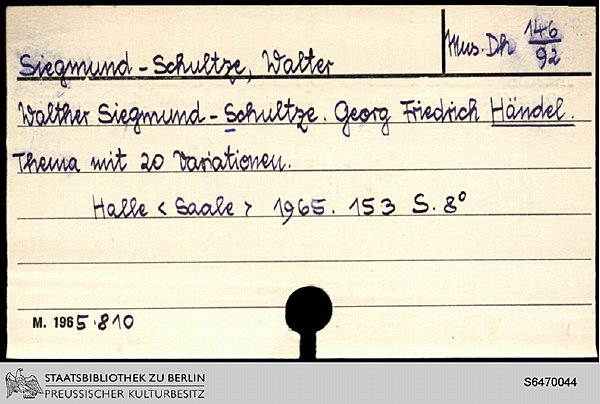 Siegmund-Schultze, Walter
Mus. Dh 146/92
Walther Siegmund-Schultze. Georg Friedrich Händel.
Thema mit 20 Variationen.
Halle < Saale > 1965. 153 S. 8°
M. 1965.810
STAATSBIBLIOTHEK ZU BERLIN
PREUSSISCHER KULTURBESITZ
S6470044